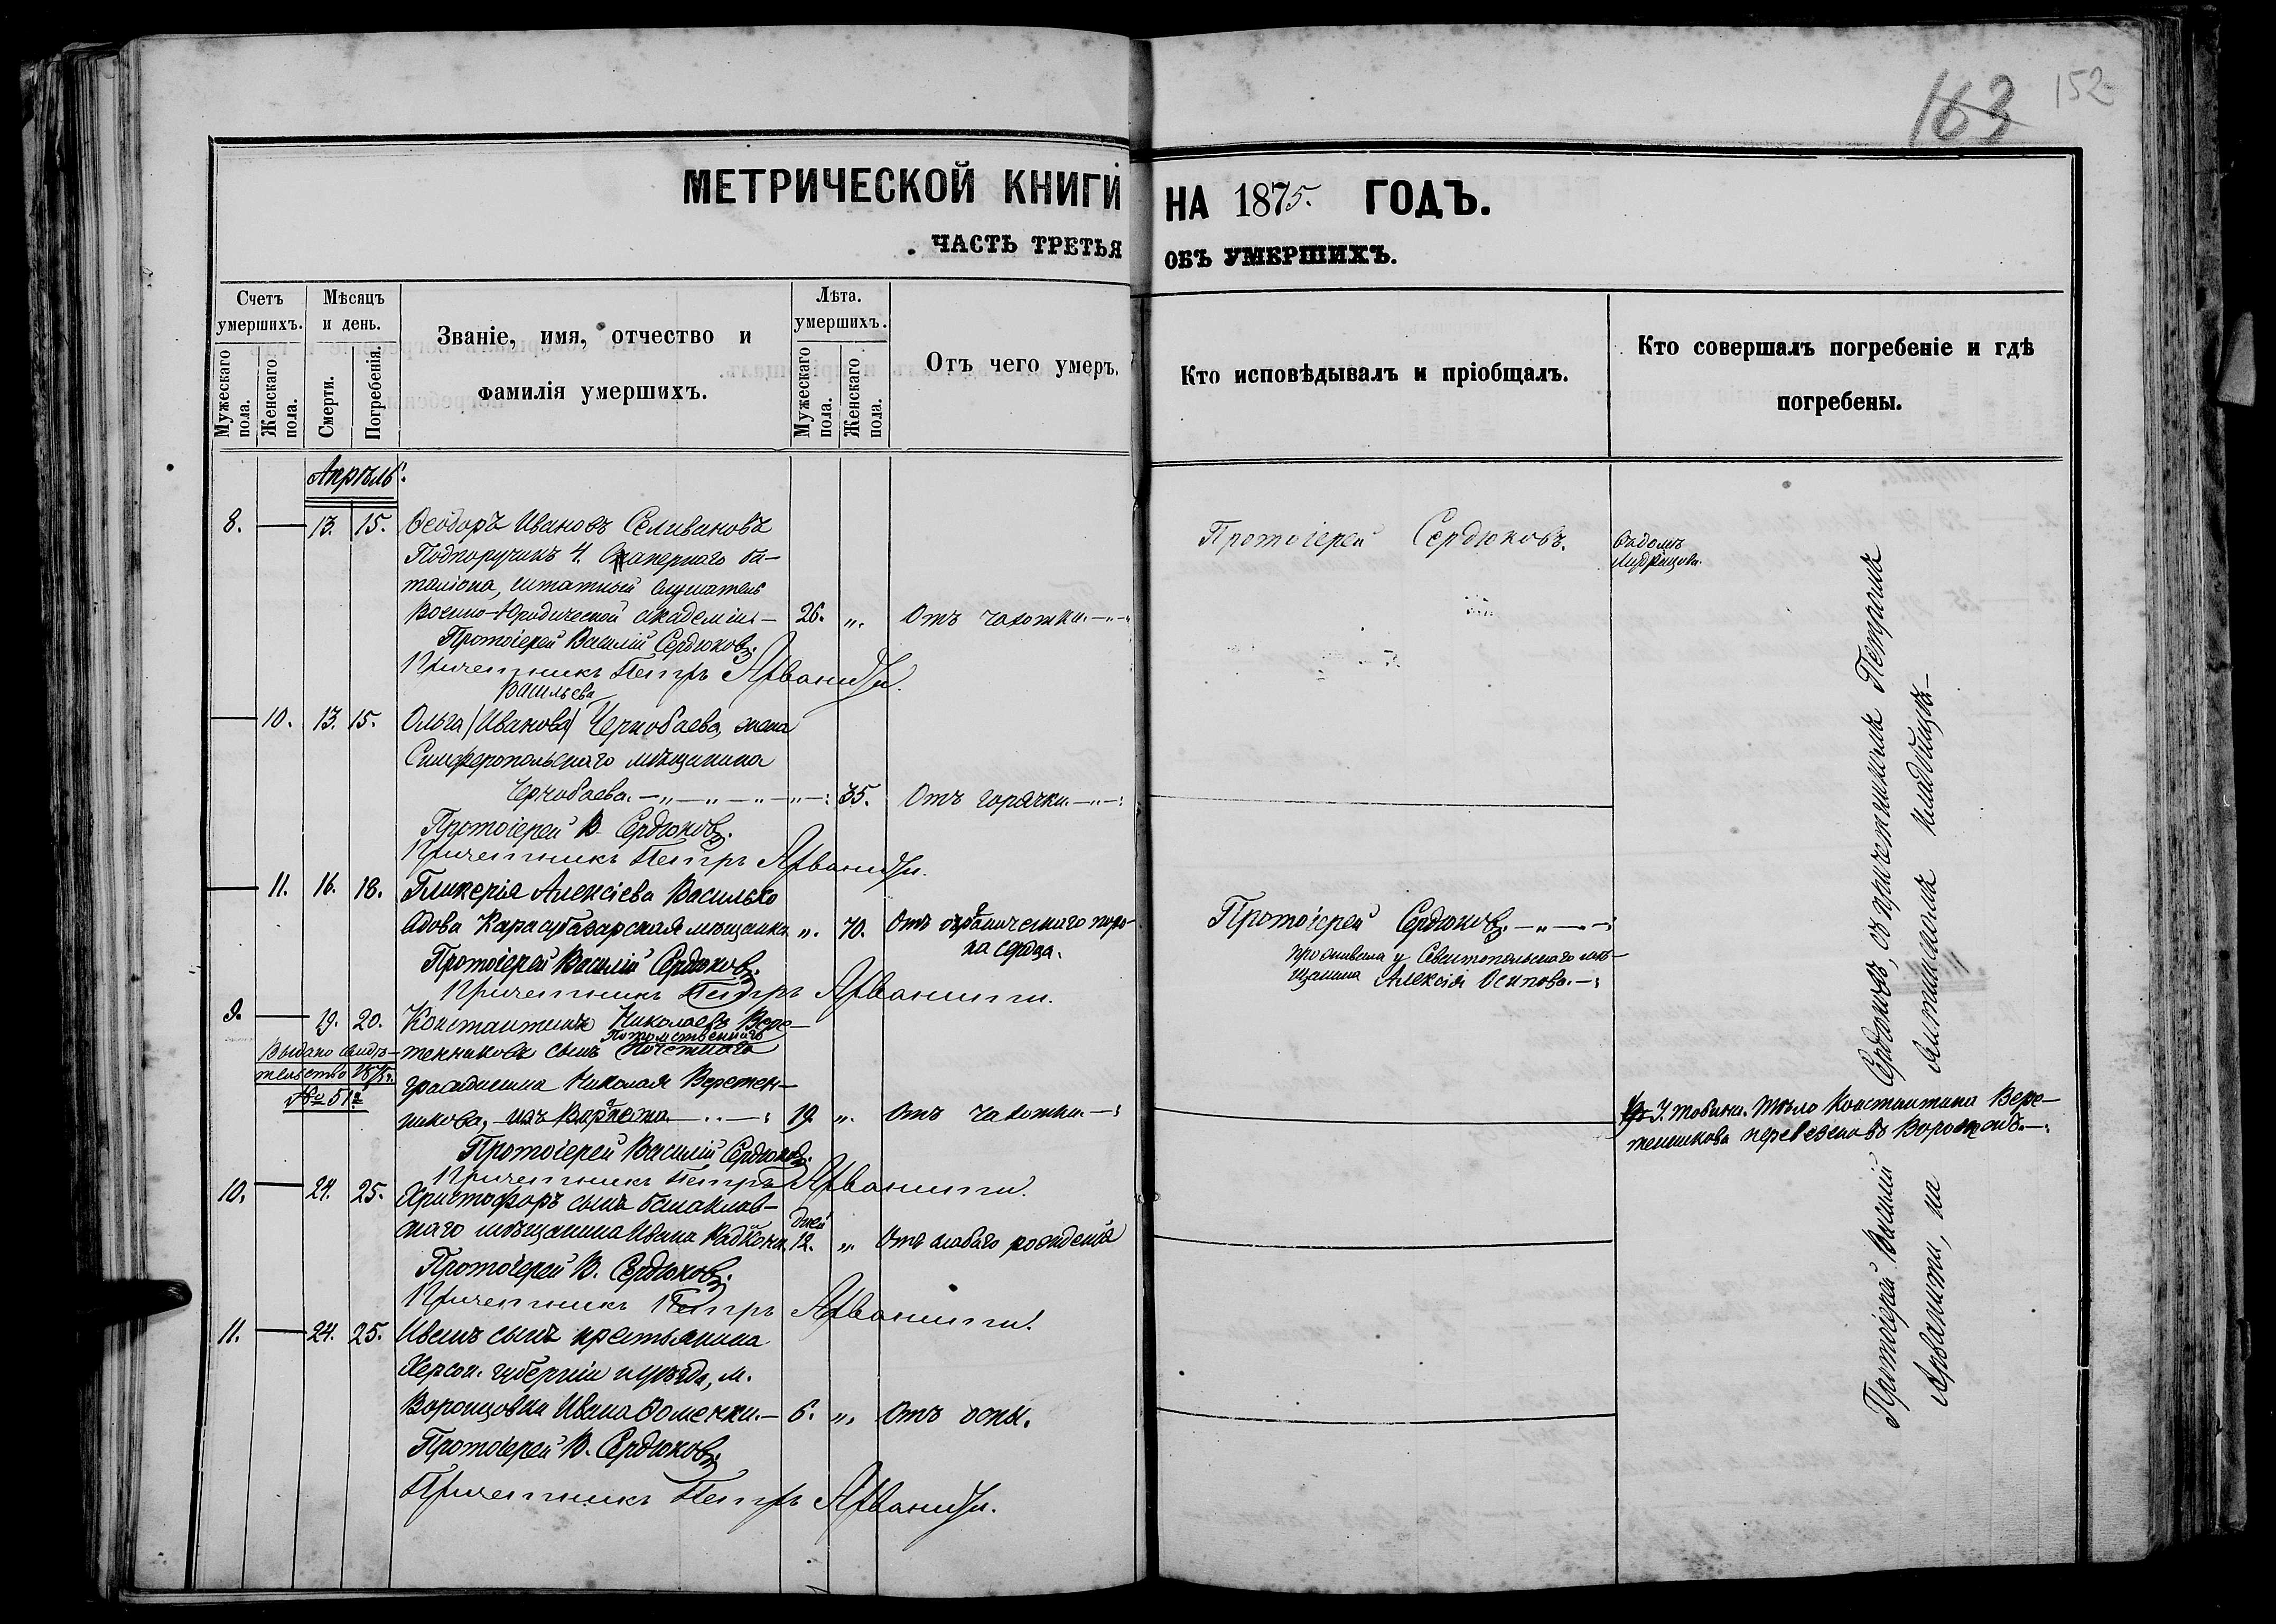 163 152
МЕТРИЧЕСКОЙ КНИГИ НА 1875. ГОДЪ.
ЧАСТЬ ТРЕТЬЯ ОБЪ УМЕРШИХЪ.
Счетъ умершихъ.
Мужескаго пола.
Женскаго пола.
Мѣсяцъ и день.
Смерти.
Погребенія.
Званіе, имя, отчество и
фамилія умершихъ.
Лѣта. умершихъ.
Мужескаго пола.
Женскаго пола.
Отъ чего умеръ.
Кто исповѣдывалъ и пріобщалъ.
Кто совершалъ погребеніе и гдѣ
погребены.
Апрѣль.
8. — 13. 15. Ѳеодоръ Ивановъ Селивановъ
Подпоручикъ 4. Сапернаго ба-
таліона, штатный слушатель
Военно-Юридической академіи — 26. „. Отъ чахотки. —„—
Протоіерей Сердюковъ.
Протоіерей Василій Сердюковъ.
Причетникъ Петръ Арванити.
Васильева
— 10. 13. 15. Ольга (Иванова) Чернобаева, жена
Симферопольскаго мѣщанина
Чернобаева. —„—„—„—„—: 35. Отъ горячки. —„—:
Протоіерей В. Сердюковъ.
Причетникъ Петръ Арванити.
— 11. 16. 18. Гликерія Алексіева Василько
Карасубазарская мѣщанка „. 70. Отъ органическаго поро-
ка сердца.
Протоіерей Сердюковъ. —„—:
проживала у Севастопольскаго мѣ-
щанина Алексія Осипова. —:
Протоіерей Василій Сердюковъ.
Причетникъ Петръ Арванити.
9. — 19. 20. Константинъ Николаевъ Вере-
Потомственнаго
тенниковъ сынъ Почетнаго
Выдано свидѣ-
тельство
№ 51
гражданина Николая Веретен-
никова, изъ —: 19. „. Отъ чахотки. —:
Тѣло Константина Вере-
тенникова перевезено въ Воронежъ. —:
Протоіерей Василій Сердюковъ.
Причетникъ Петръ Арванити.
10. — 24. 25. Христофоръ сынъ
скаго мѣщанина Ивана дней 12. „ Отъ слабаго рожденія
Протоіерей В. Сердюковъ.
Причетникъ Петръ Арванити.
11. — 24. 25. Иванъ сынъ крестьянина
Херсон. губерніи и уѣзда, м.
Воронцовки Ивана Фоменки. — 6. „. Отъ оспы.
Протоіерей В. Сердюковъ.
Причетникъ Петръ Арванити.
Протоіерей Василій Сердюковъ, съ причетникомъ Петромъ
Арванити, на кладбищѣ —